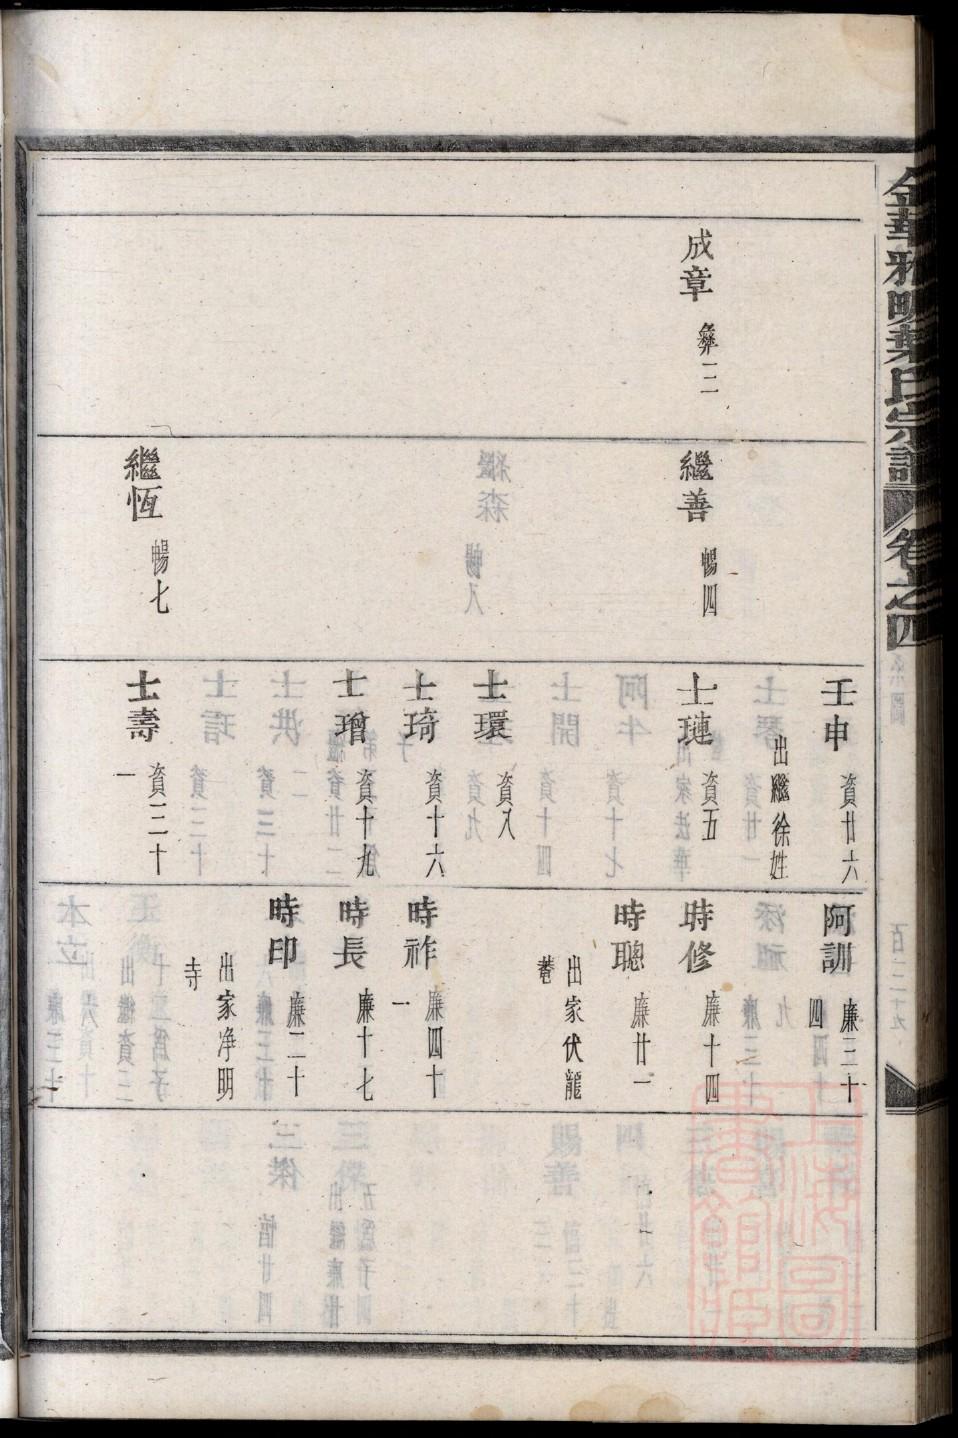 金華雅畈葉氏宗譜
卷之四
系圖
百二十九
成章 彝三
繼善 暢四
繼恆 暢七
壬申 資廿六
出繼徐姓
士璉 資五
士環 資八
士琦 資十六
士增 資十九
士壽 資三十
一
阿訓 廉三十
四
時修 廉十四
時聰 廉廿一
出家伏龍
菴
時祚 廉四十
一
時長 廉十七
時印 廉二十
出家净明
寺
上海圖書館藏